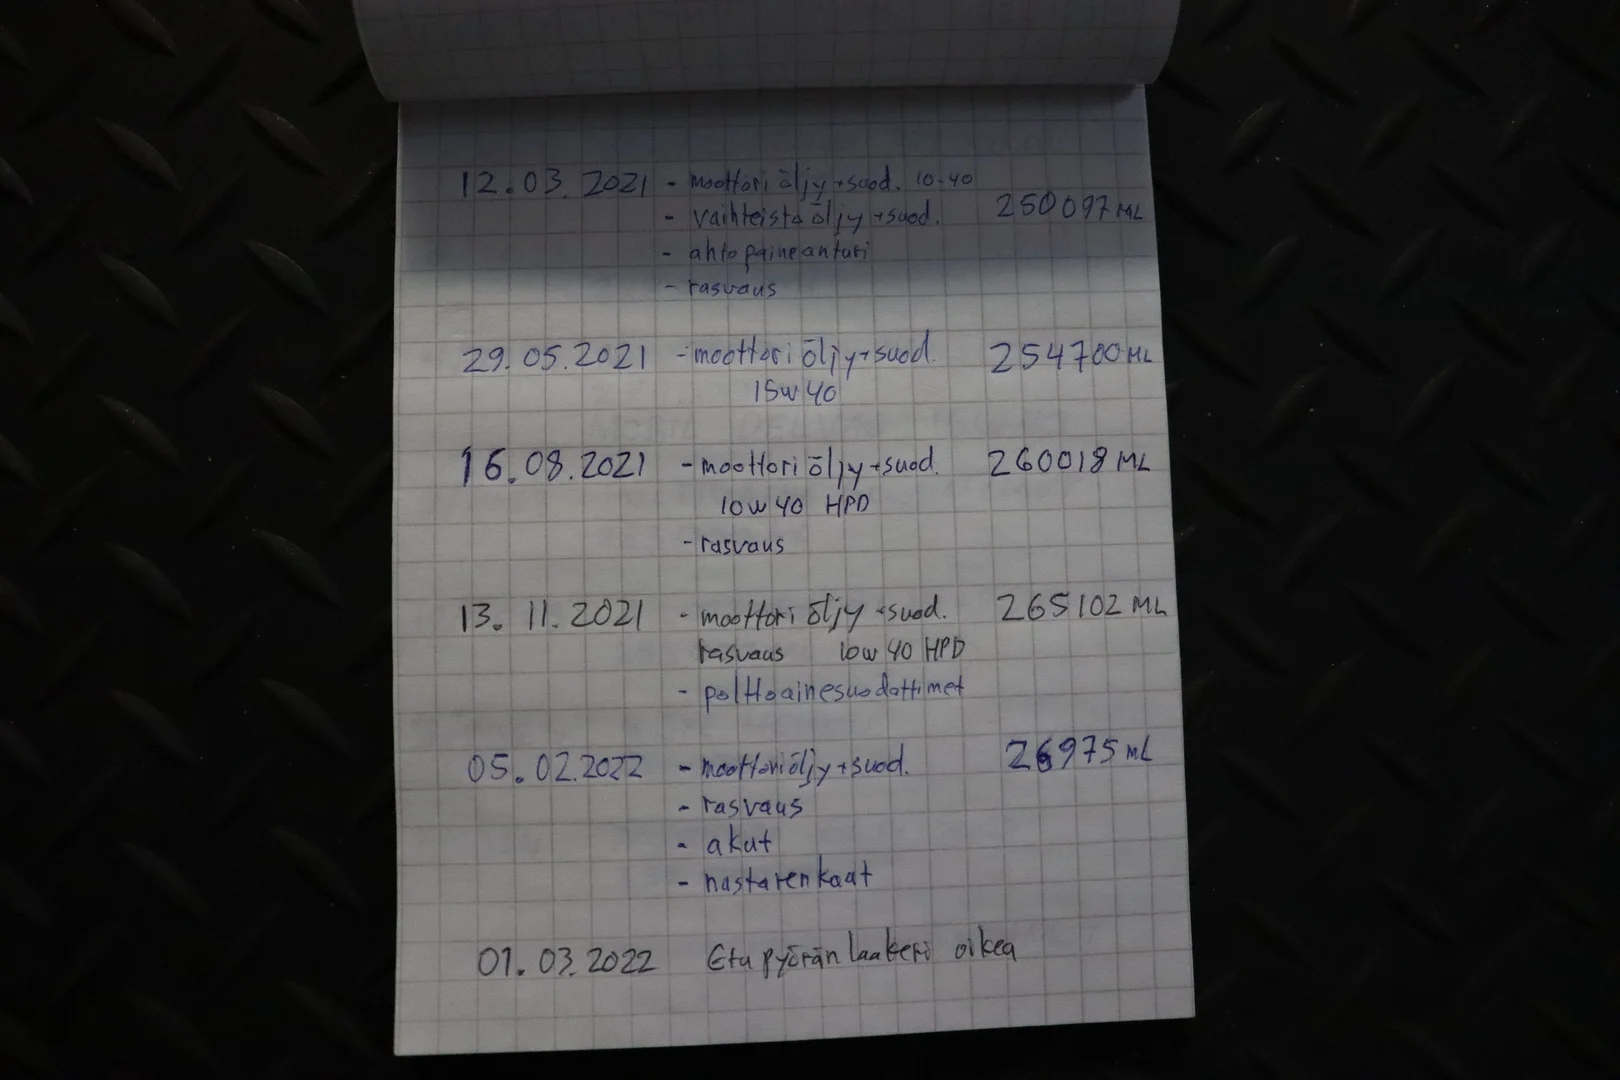 12.03.2021 - moottori öljy+suod. 10-40
- vaihteisto öljy+suod. 250097 ML
- ahtopaineanturi
- rasvaus
29.05.2021 - moottori öljy+suod. 254700 ML
15w40
16.08.2021 - moottori öljy+suod. 260018 ML
10w40 HPD
- rasvaus
13.11.2021 - moottori öljy+suod. 265102 ML
rasvaus 10w40 HPD
- polttoainesuodattimet
05.02.2022 - moottoriöljy+suod. 26975 ML
- rasvaus
- akut
- nastarenkaat
01.03.2022 Etupyörän laakeri oikea